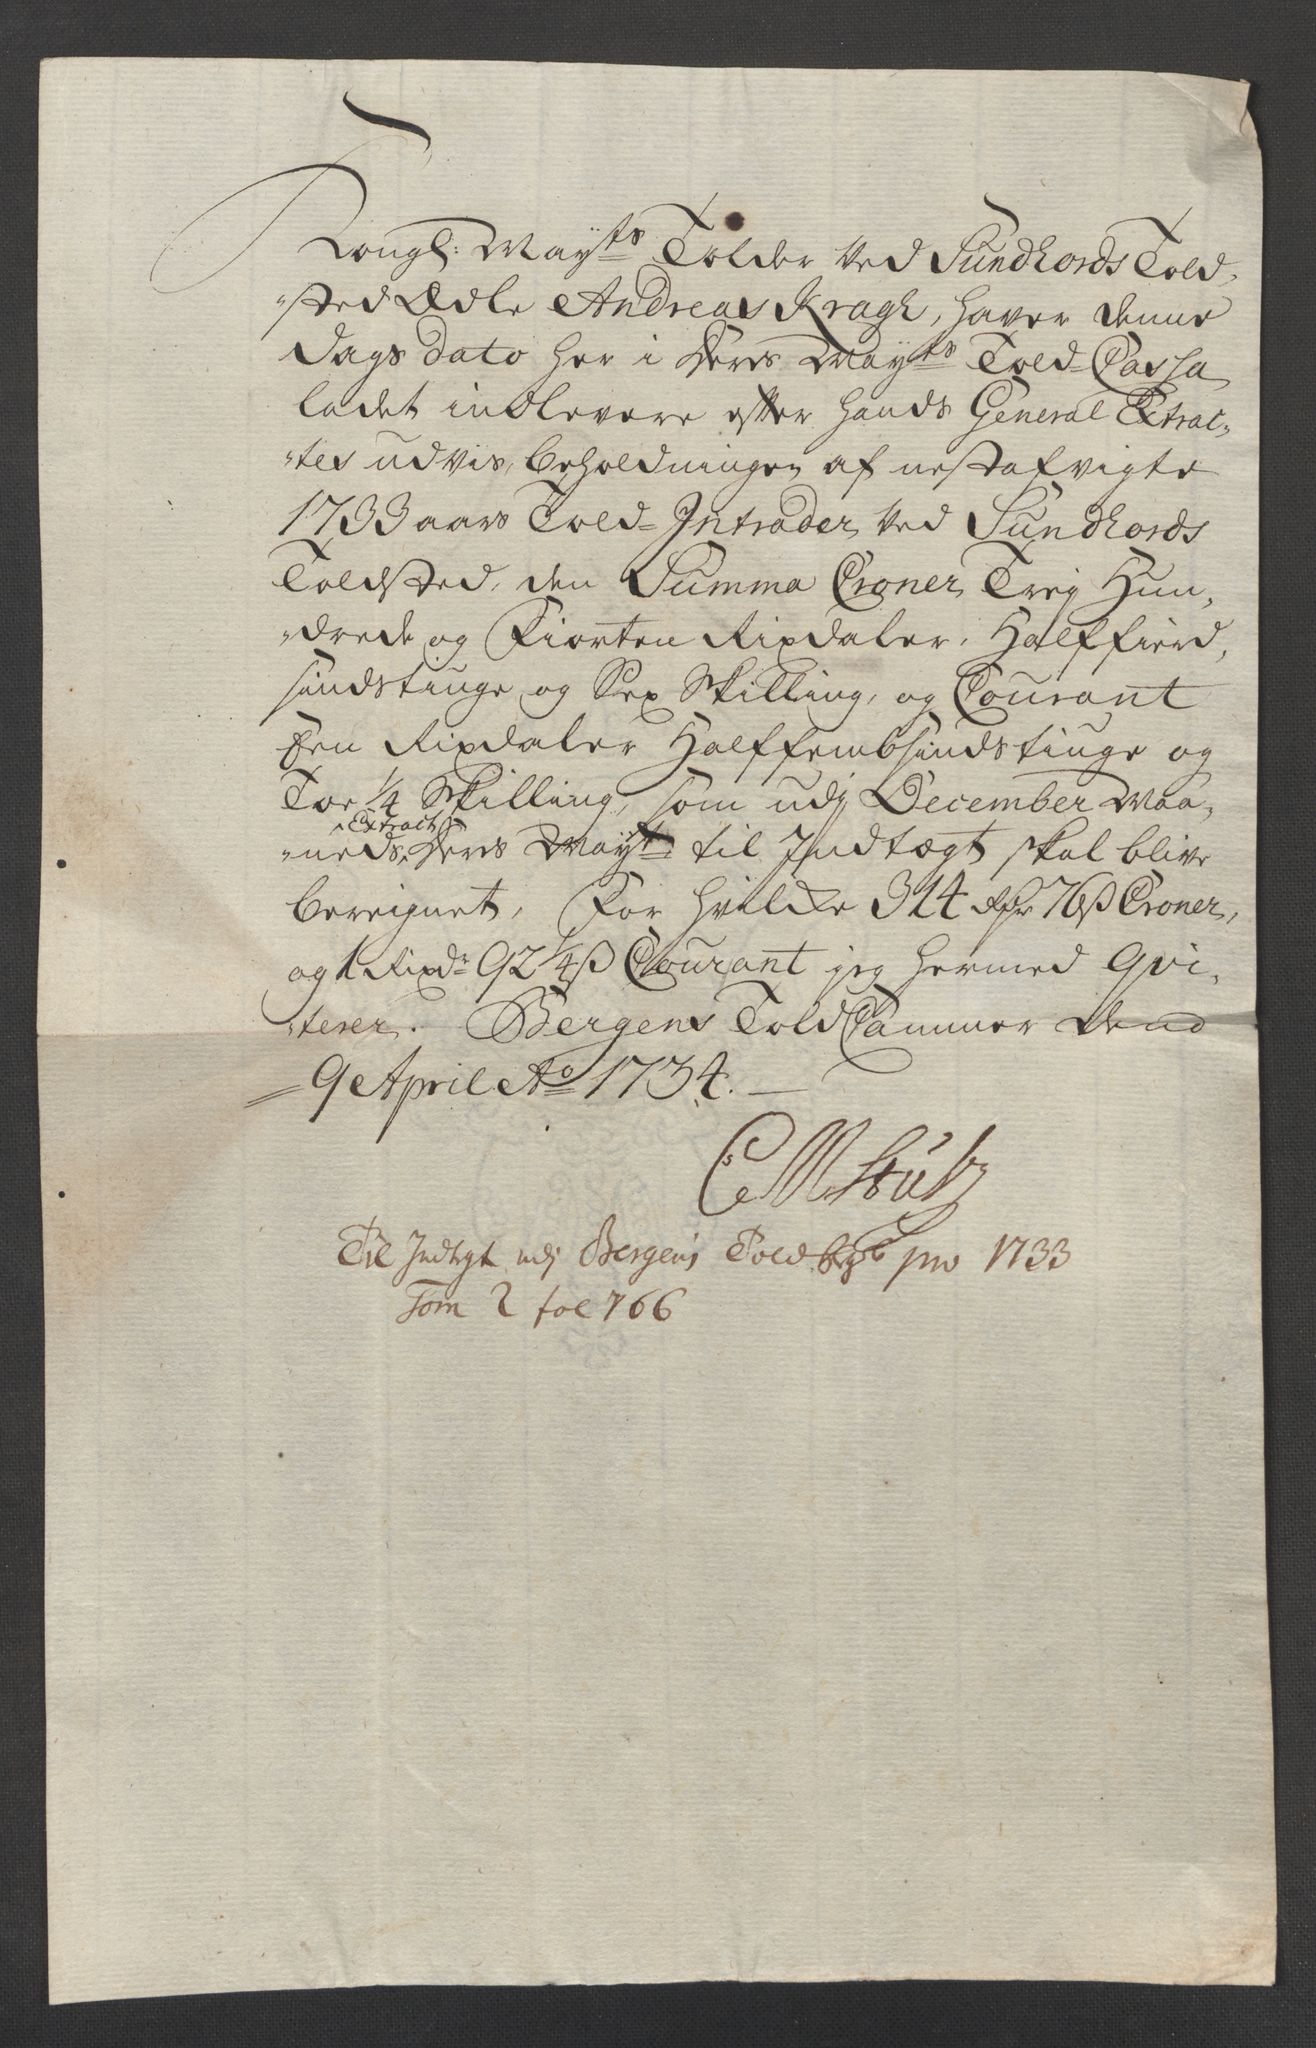 Kongl: Mayts Tolder ved Sundhords Told,
"sted Ædle Andreas Kragh, haver denne
Dags Dato her i Deres Mayts Told=Cassa
ladet indlevere efter hands General Extrac,
"tes udvis, beholdningen af nestafvigte
1733 aars Told=Intrader ved Sundhords
Toldsted, den Summa Croner Trej Hun,
"drede og Fiorten Rixdaler, Halffierd,
sindstiuge og Sex Skilling, og Courant
Een Rixdaler Halffembsindstiuge og
Toe 1/4 Skilling, som udj December Maa,
Extract
"neds, Deres Mayts til Indtægt skal blive
bereignet, For hvilcke 314 Rdr 76 ß Croner,
og 1 Rixdr 92 1/4 ß Courant jeg hermed qvi,
"terer. Bergens Told Cammer Dend
9 April Ao 1734.
Til Indtegt udj Bergens Told pro 1733
Tom 2 fol 766